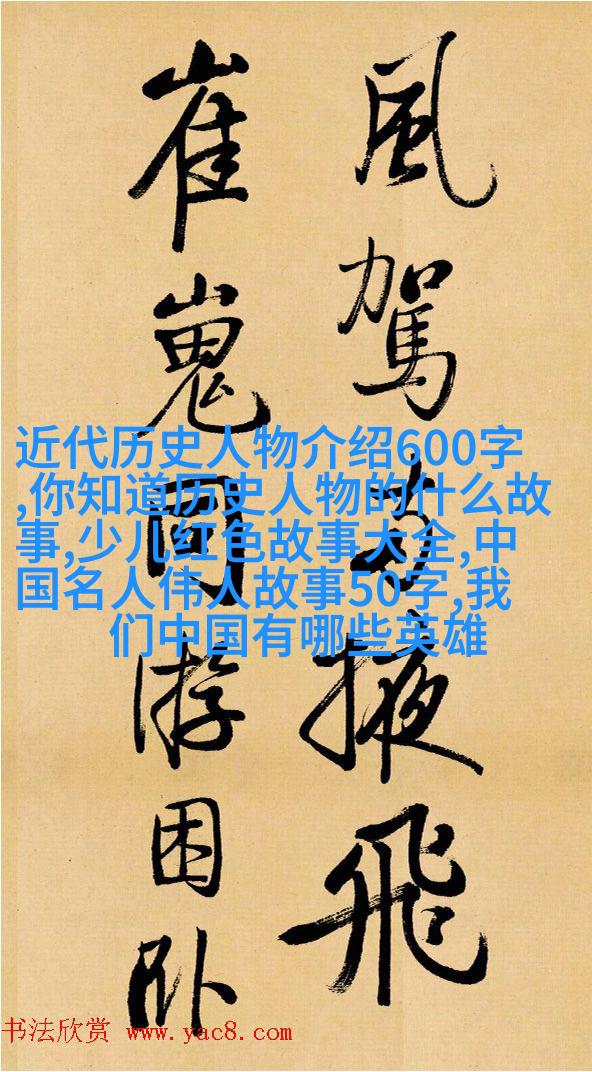 風駕掖飛
崔嵬同游困卧
近代历史人物介绍600字
,你知道历史人物的什么故
事,少儿红色故事大全,中
国名人伟人故事50字,我
们中国有哪些英雄
书法欣赏 www.yac8.com